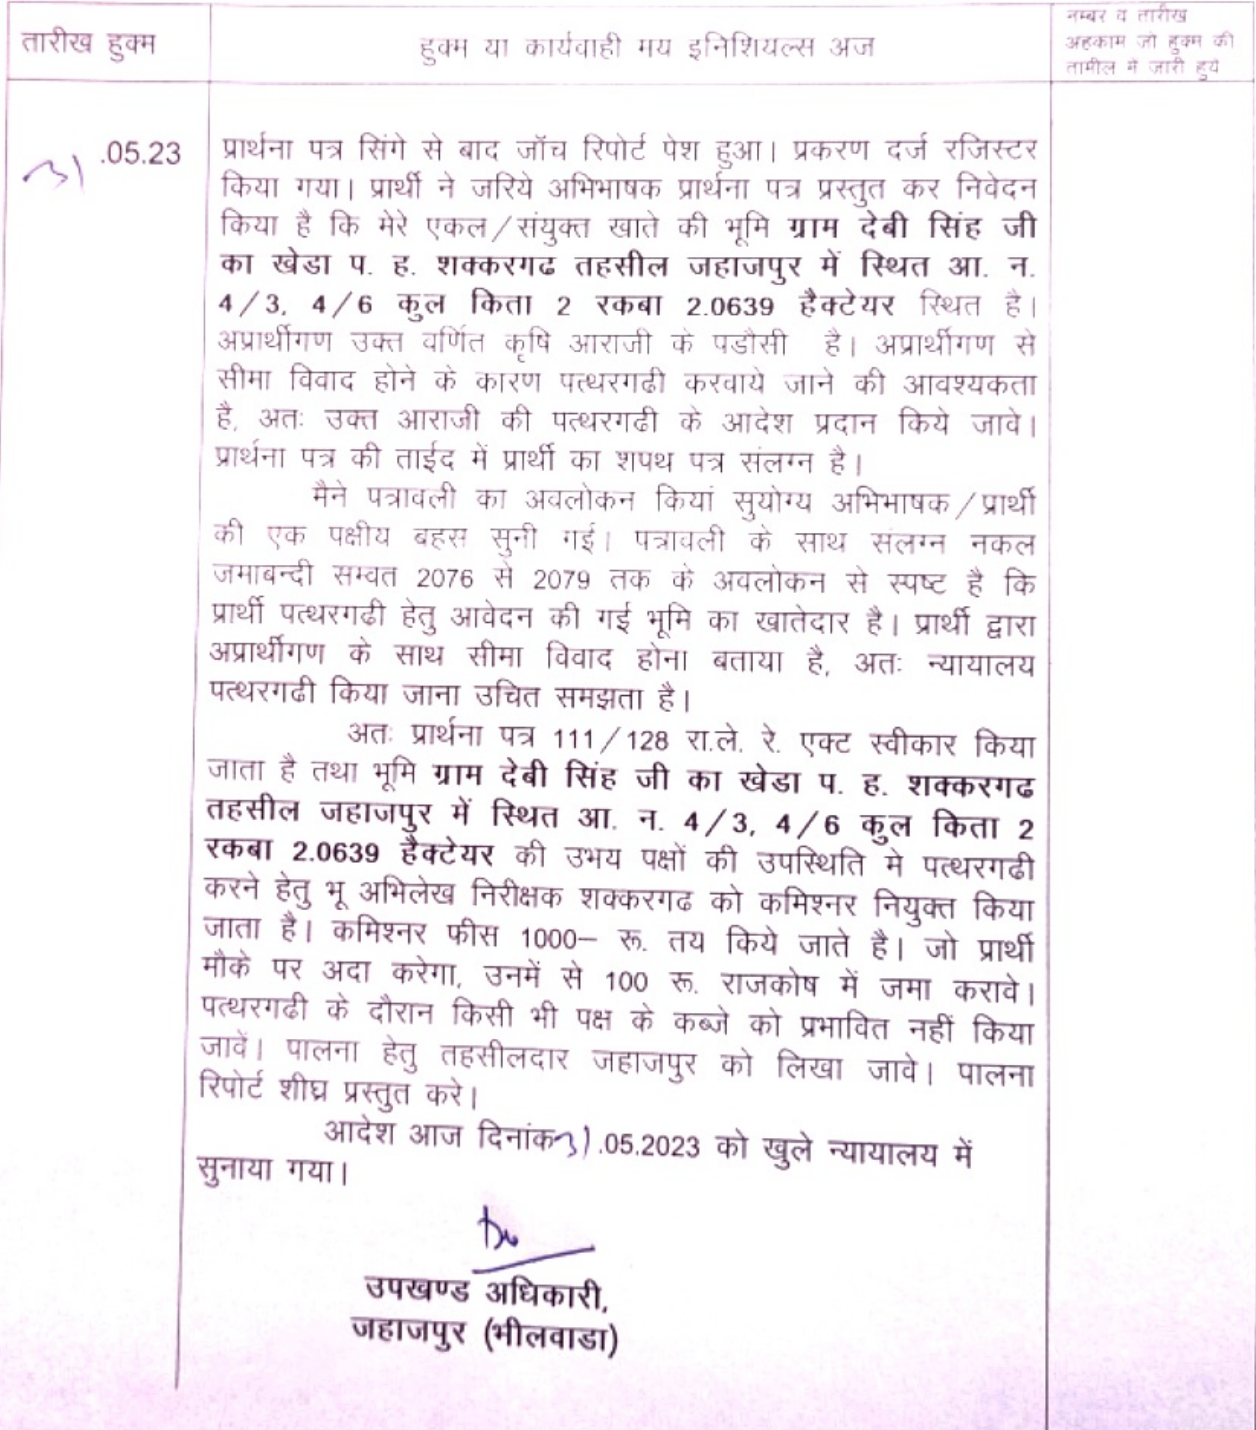 तारीख हुक्म
हुक्म या कार्यवाही मय इनिशियल्स अज
नम्बर व तारीख
अहकाम जो हुक्म की
तामील में जारी हुये
31.05.23
प्रार्थना पत्र सिंगे से बाद जॉच रिपोर्ट पेश हुआ। प्रकरण दर्ज रजिस्टर
किया गया। प्रार्थी ने जरिये अभिभाषक प्रार्थना पत्र प्रस्तुत कर निवेदन
किया है कि मेरे एकल/संयुक्त खाते की भूमि ग्राम देबी सिंह जी
का खेडा प. ह. शक्करगढ तहसील जहाजपुर में स्थित आ. न.
4/3, 4/6 कुल किता 2 रकबा 2.0639 हैक्टेयर स्थित है।
अप्रार्थीगण उक्त वर्णित कृषि आराजी के पडौसी है। अप्रार्थीगण से
सीमा विवाद होने के कारण पत्थरगढी करवाये जाने की आवश्यकता
है, अतः उक्त आराजी की पत्थरगढी के आदेश प्रदान किये जावे।
प्रार्थना पत्र की ताईद में प्रार्थी का शपथ पत्र संलग्न है।
मैने पत्रावली का अवलोकन कियां सुयोग्य अभिभाषक/प्रार्थी
की एक पक्षीय बहस सुनी गई। पत्रावली के साथ संलग्न नकल
जमाबन्दी सम्वत 2076 से 2079 तक के अवलोकन से स्पष्ट है कि
प्रार्थी पत्थरगढी हेतु आवेदन की गई भूमि का खातेदार है। प्रार्थी द्वारा
अप्रार्थीगण के साथ सीमा विवाद होना बताया है, अतः न्यायालय
पत्थरगढी किया जाना उचित समझता है।
अतः प्रार्थना पत्र 111/128 रा.ले. रे. एक्ट स्वीकार किया
जाता है तथा भूमि ग्राम देबी सिंह जी का खेडा प. ह. शक्करगढ
तहसील जहाजपुर में स्थित आ. न. 4/3, 4/6 कुल किता 2
रकबा 2.0639 हैक्टेयर की उभय पक्षों की उपस्थिति मे पत्थरगढी
करने हेतु भू अभिलेख निरीक्षक शक्करगढ को कमिश्नर नियुक्त किया
जाता है। कमिश्नर फीस 1000– रू. तय किये जाते है। जो प्रार्थी
मौके पर अदा करेगा, उनमें से 100 रू. राजकोष में जमा करावे।
पत्थरगढी के दौरान किसी भी पक्ष के कब्जे को प्रभावित नहीं किया
जावें। पालना हेतु तहसीलदार जहाजपुर को लिखा जावे। पालना
रिपोर्ट शीघ्र प्रस्तुत करे।
आदेश आज दिनांक 31.05.2023 को खुले न्यायालय में
सुनाया गया।
उपखण्ड अधिकारी,
जहाजपुर (भीलवाडा)